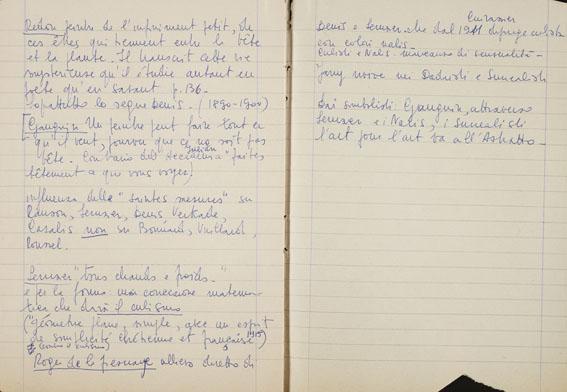 Redon peintre de l'infiniment petit, de
ces êtres qui tiennent entre la bête
et la plante. Il connait cette vie
mystérieuse qu'il étudie autant en
poète qu'en savant p. 136.
Soprattutto lo segue Denis. (1890-1900)
Gauguin Un peintre peut faire tout ce
qu'il veut, pourvu que ce ne soit pas
bête. Contrario dell'Accademia Julian "faites
bêtement ce que vous voyez)
influenza delle "saintes mesures" su
Ranson, Serusier, Denis, Verkade,
Cazalis non su Bonnard, Vuillard,
Roussel.
Serusier "tons chauds e froids"
e per la forma una concezione matema-
tica che darà il cubismo
("géométrie plane, simple, avec un esprit
de simplicité chrétienne et française) 1915
Roger de la Fresnaye allievo diretto di
Denis e Serusier che dal 1911 dipinge cubista
con colori nabis.
Cubisti e Nabis. mancanza di sensualità -
Jarry rivive nei Dadaisti e Surrealisti
Dai simbolisti: Gauguin, attraverso
Serusier e i Nabis, i Surrealisti
l'art pour l'art va all'Astratto -